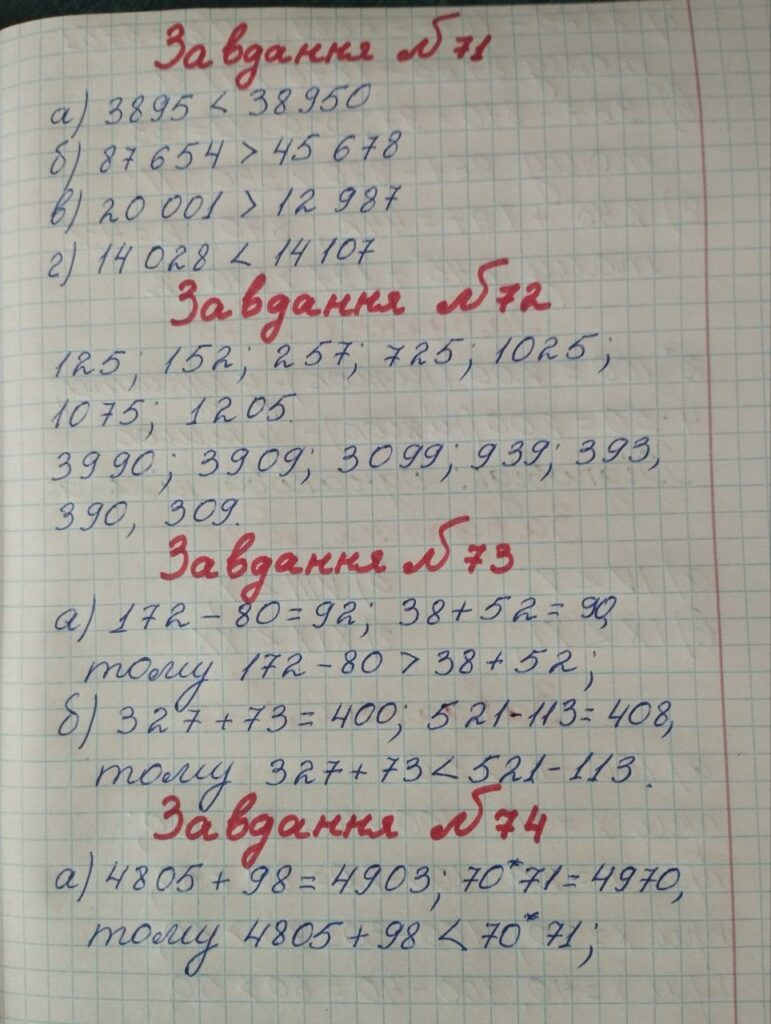 Завдання №71
а) 3895 < 38950
б) 87 654 > 45 678
в) 20 001 > 12 987
г) 14 028 < 14 107
Завдання №72
125; 152; 257; 725; 1025;
1075; 1205.
3990; 3909; 3099; 939; 393,
390, 309.
Завдання №73
а) 172 - 80 = 92; 38 + 52 = 90,
тому 172 - 80 > 38 + 52;
б) 327 + 73 = 400; 521 - 113 = 408,
тому 327 + 73 < 521 - 113.
Завдання №74
а) 4805 + 98 = 4903; 70*71 = 4970,
тому 4805 + 98 < 70*71;